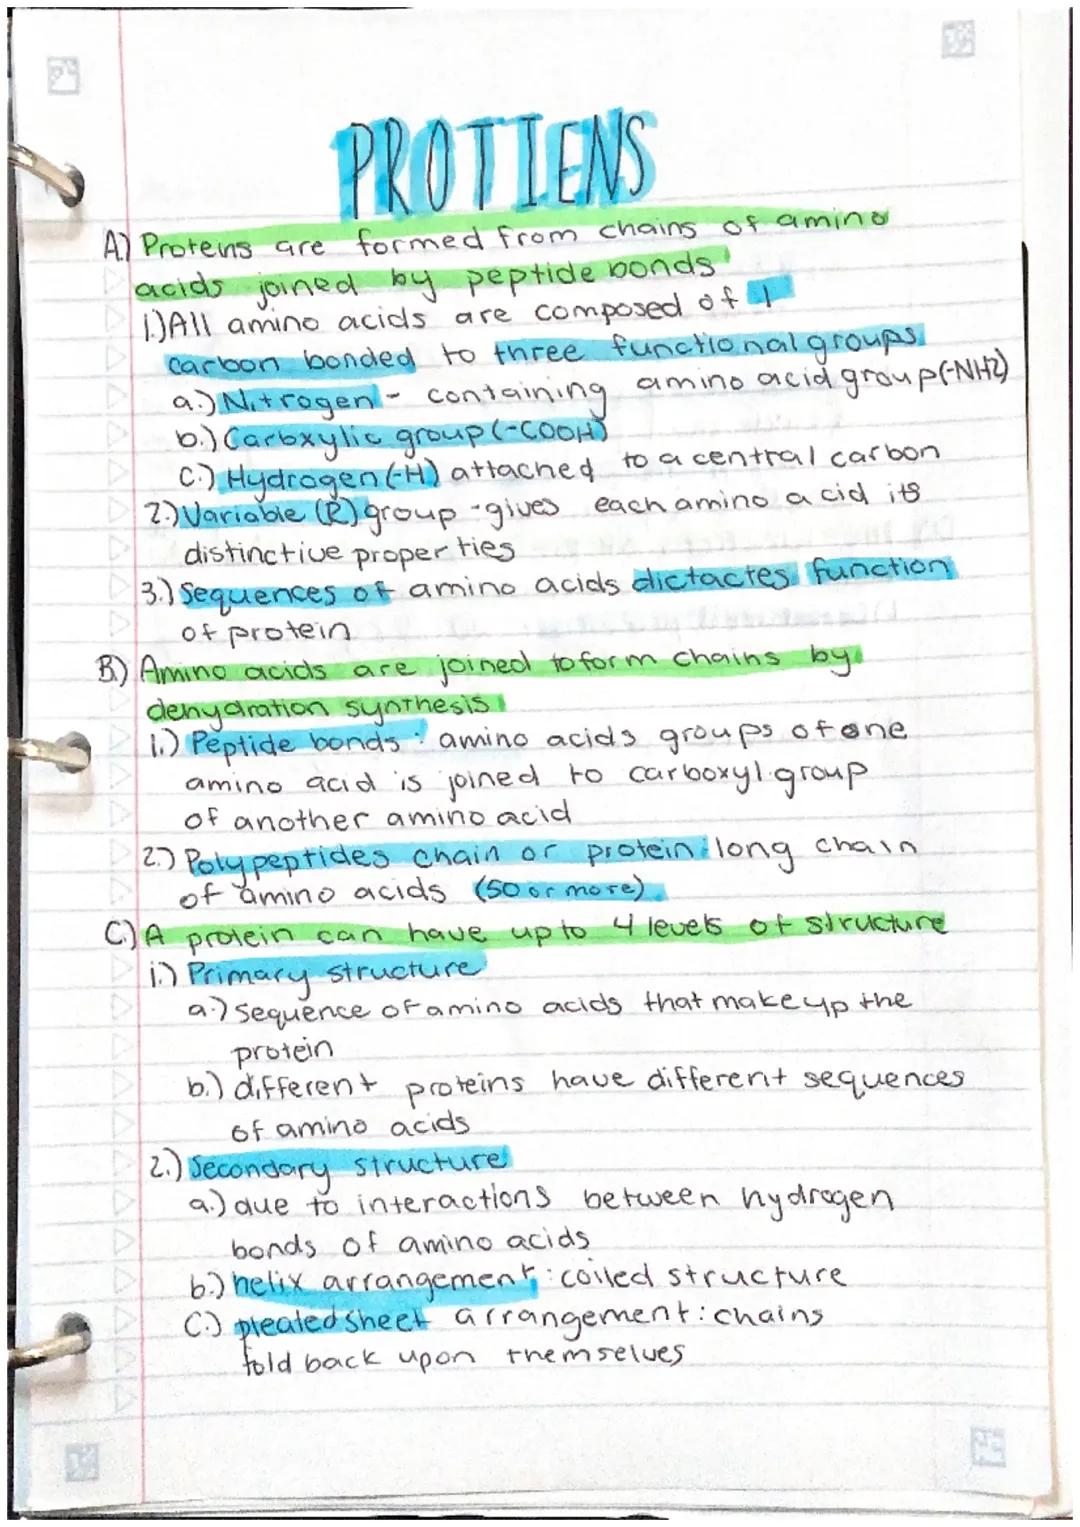 PROTIENS
A.) Proteins are formed from chains of amino
acids joined by peptide bonds
1.) All amino acids are composed of 1
carbon bonded to three functional groups.
a.) Nitrogen - containing amino acid group (-NH2)
b.) Carbxylic group (-COOH)
C.) Hydrogen (-H) attached to a central carbon
2.) Variable (R) group - gives each amino acid its
distinctive properties
3.) Sequences of amino acids dictactes function
of protein
B.) Amino acids are joined to form chains by
dehydration synthesis
1.) Peptide bonds: amino acids groups of one
amino acid is joined to carboxyl group
of another amino acid
2.) Polypeptides chain or protein: long chain
of amino acids (50 or more)
C.) A protein can have up to 4 levels of structure
1.) Primary structure
a.) sequence of amino acids that make up the
protein
b.) different proteins have different sequences
of amino acids
2.) Secondary structure
a.) due to interactions between hydrogen
bonds of amino acids
b.) helix arrangement: coiled structure
C.) pleated sheet arrangement: chains
fold back upon themselves